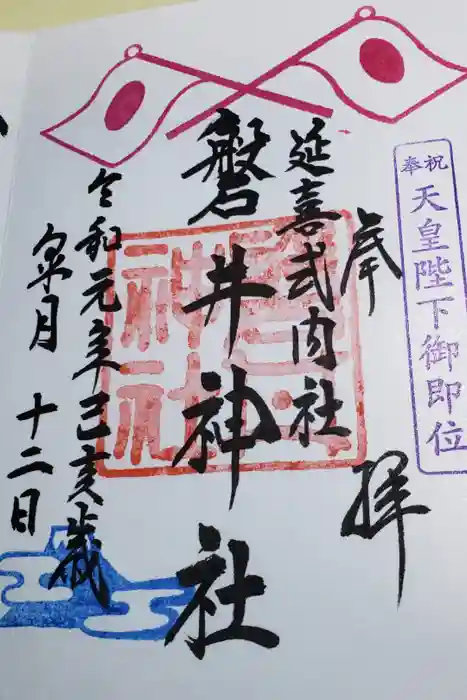 奉祝
天皇陛下御即位
奉拝
延喜式内社
磐井神社
令和元年己亥歳
皐月 十二日